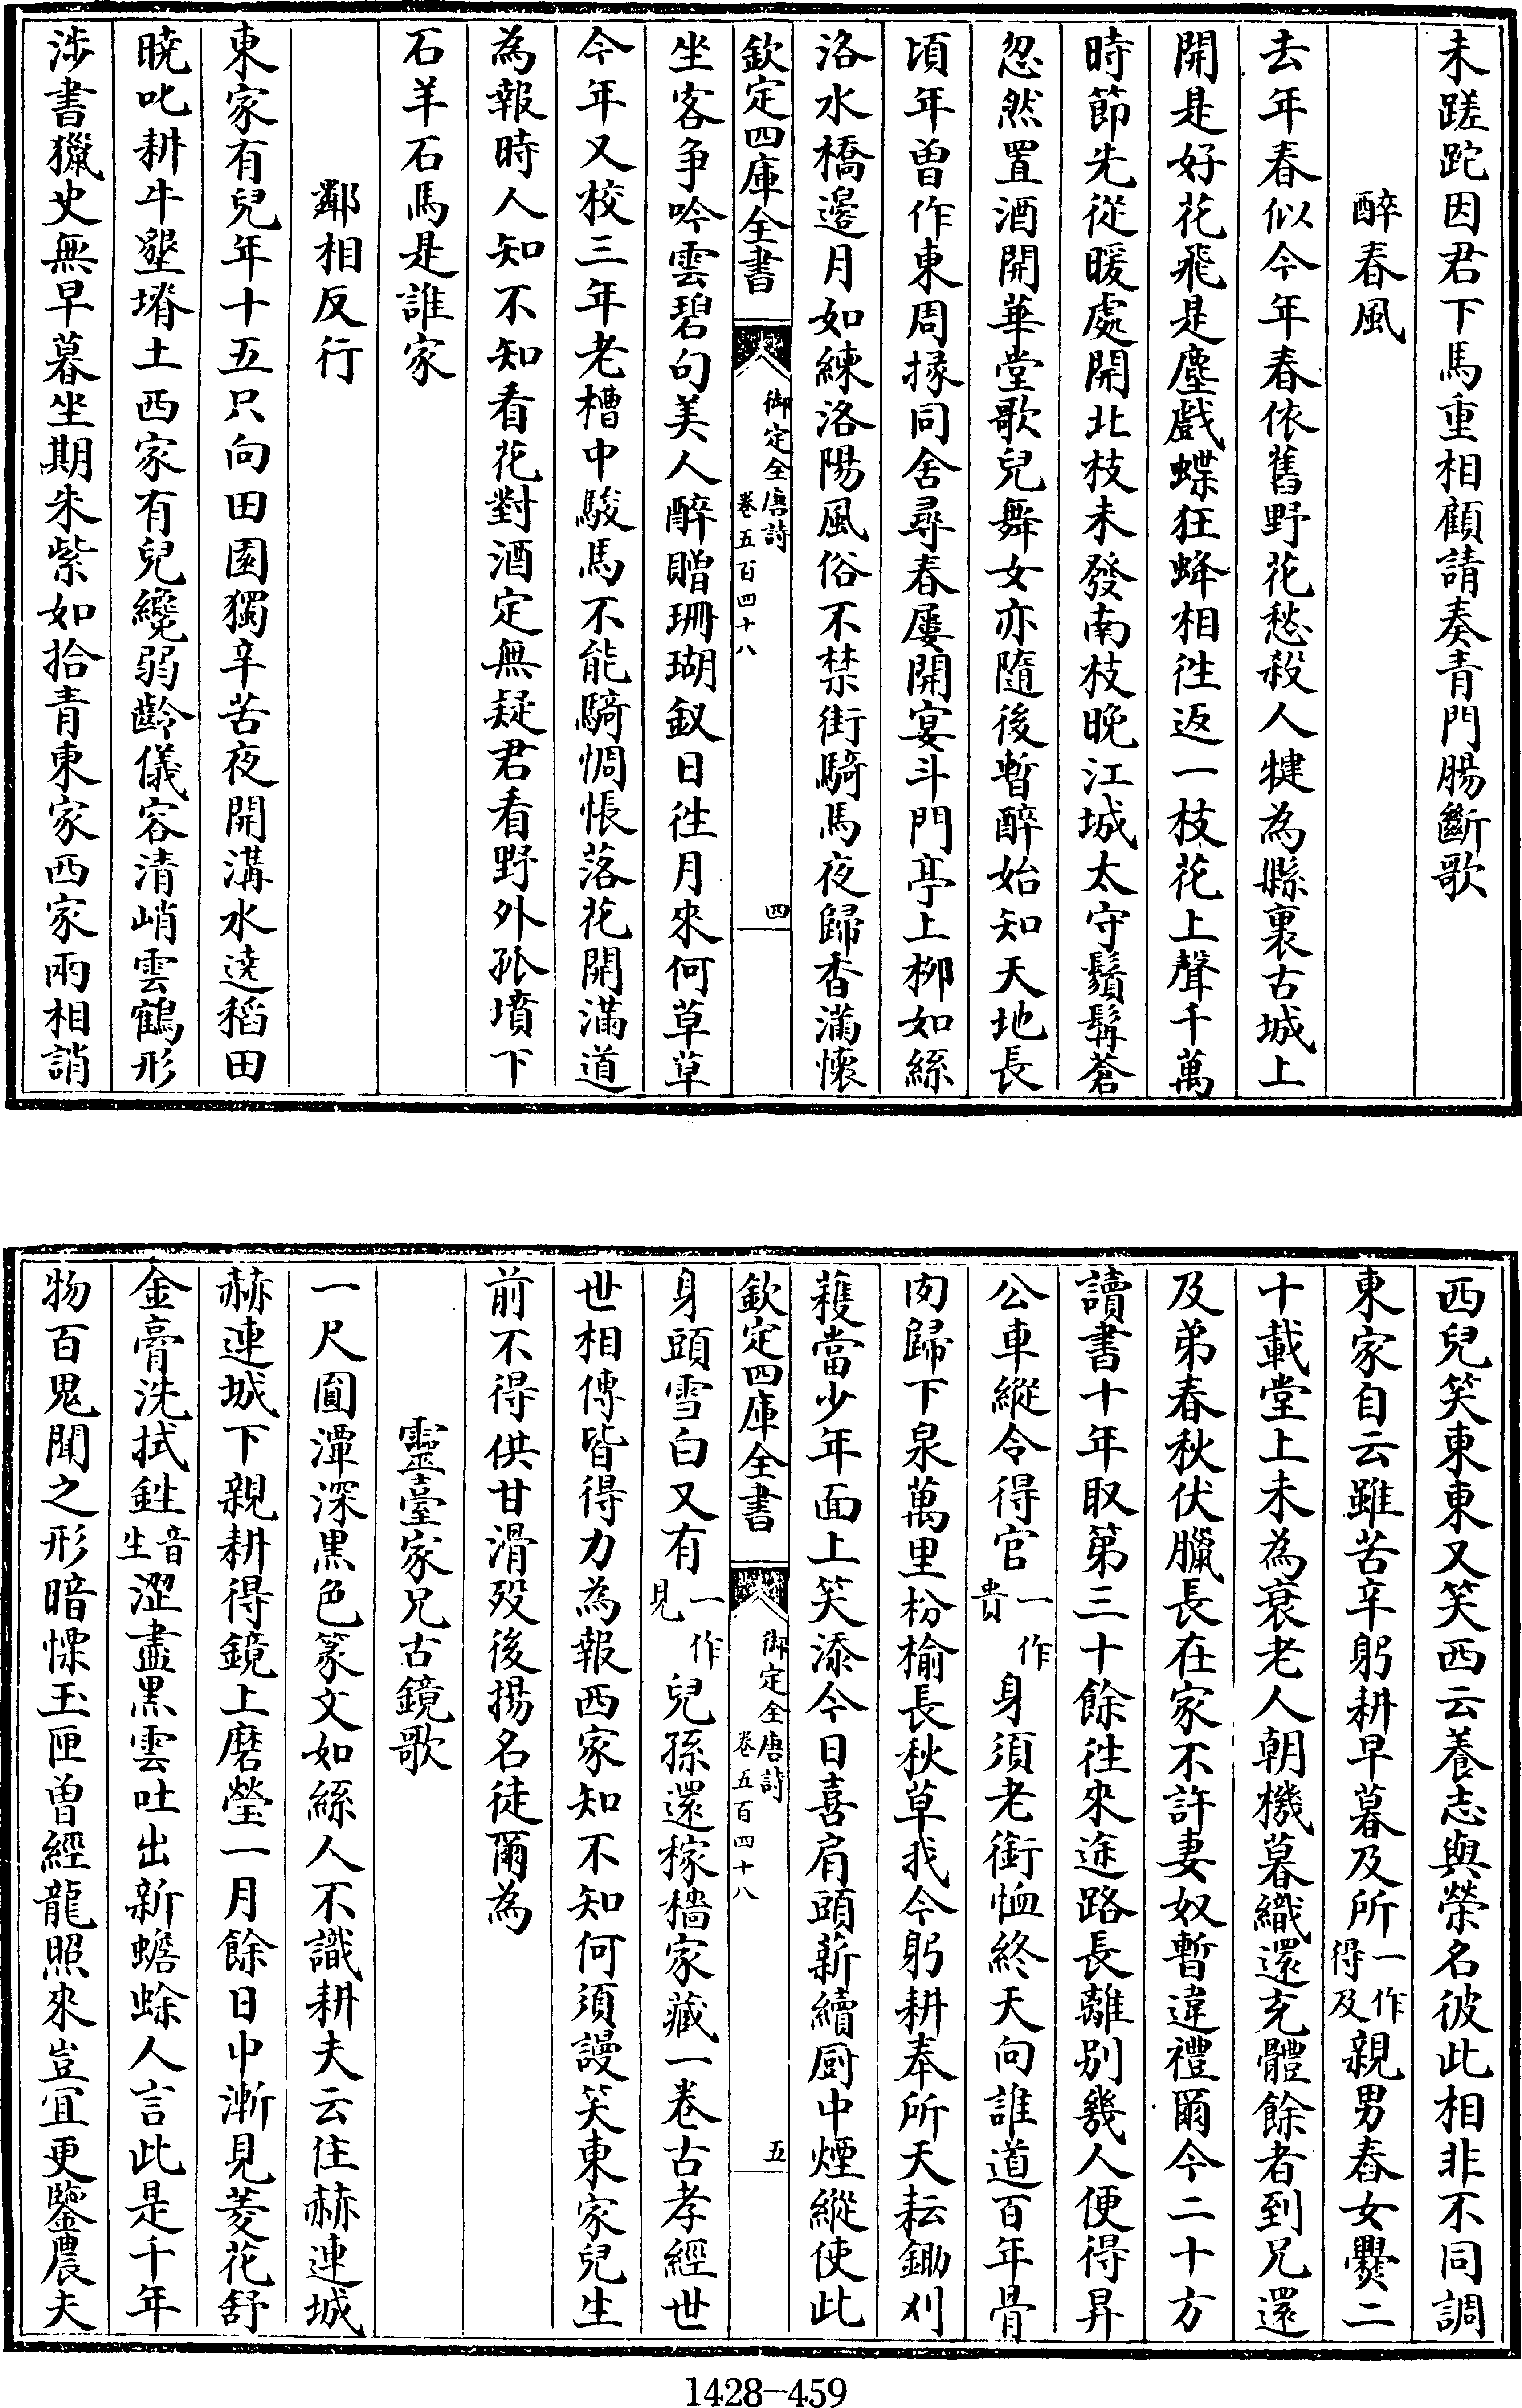 未蹉跎因君下馬重相顧請奏青門腸斷歌
醉春風
去年春似今年春依舊野花愁殺人犍為縣裏古城上
開是好花飛是塵戲蝶狂蜂相往返一枝花上聲千萬
時節先從暖處開北枝未發南枝晚江城太守鬚髯蒼
忽然置酒開華堂歌兒舞女亦隨後暫醉始知天地長
頃年曽作東周掾同舍尋春屢開宴斗門亭上柳如絲
洛水橋邉月如練洛陽風俗不禁街騎馬夜歸香滿懷
欽定四庫全書
御定全唐詩
卷五百四十八
四
坐客争吟雲碧句美人醉贈珊瑚釵日往月來何草草
今年又校三年老槽中駿馬不能騎惆悵落花開滿道
為報時人知不知看花對酒定無疑君看野外孤墳下
石羊石馬是誰家
鄰相反行
東家有兒年十五只向田園獨辛苦夜開溝水遶稻田
曉叱耕牛墾塉土西家有兒纔弱齡儀容清峭雲鶴形
涉書獵史無早暮坐期朱紫如拾青東家西家兩相誚
西兒笑東東又笑西云養志與榮名彼此相非不同調
東家自云雖苦辛躬耕早暮及所一作得及親男舂女爨二
十載堂上未為衰老人朝機暮織還充體餘者到兄還
及弟春秋伏臘長在家不許妻奴暫違禮爾今二十方
讀書十年取第三十餘往來途路長離別幾人便得昇
公車縱令得官一作貴身須老銜恤終天向誰道百年骨
肉歸下泉萬里枌榆長秋草我今躬耕奉所天耘鋤刈
穫當少年面上笑添今日喜肩頭薪續厨中煙縱使此
欽定四庫全書
御定全唐詩
卷五百四十八
五
身頭雪白又有一作見兒孫還稼穡家藏一卷古孝經世
世相傳皆得力為報西家知不知何須謾笑東家兒生
前不得供甘滑歿後揚名徒爾為
靈臺家兄古鏡歌
一尺圓潭深黒色篆文如絲人不識耕夫云住赫連城
赫連城下親耕得鏡上磨瑩一月餘日中漸見菱花舒
金膏洗拭鉎音生澀盡黒雲吐出新蟾蜍人言此是千年
物百鬼聞之形暗慄玉匣曽經龍照來豈宜更鑒農夫
1428—459